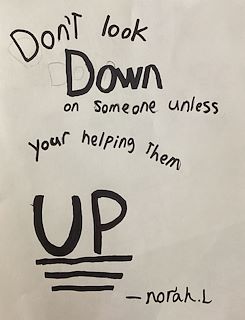 Don't look
Down
on someone unless
your helping them
UP
- norah.L